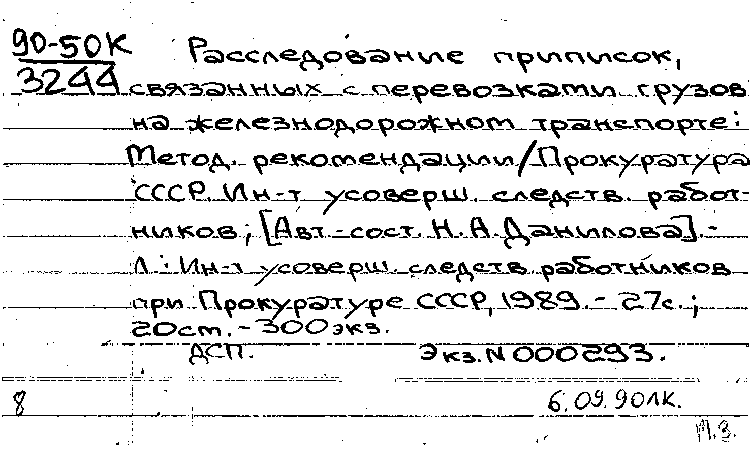 90-50К
3244
Расследование приписок,
связанных с перевозками грузов
на железнодорожном транспорте:
Метод. рекомендации/Прокуратура
СССР. Ин-т усоверш. следств. работ-
ников; [Авт.-сост. Н.А.Данилова].-
Л.: Ин-т усоверш. следств. работников
при Прокуратуре СССР, 1989.- 27с.;
20см.-300экз.
ДСП. Экз.N000293.
8 6.09.90ЛК.
М.З.